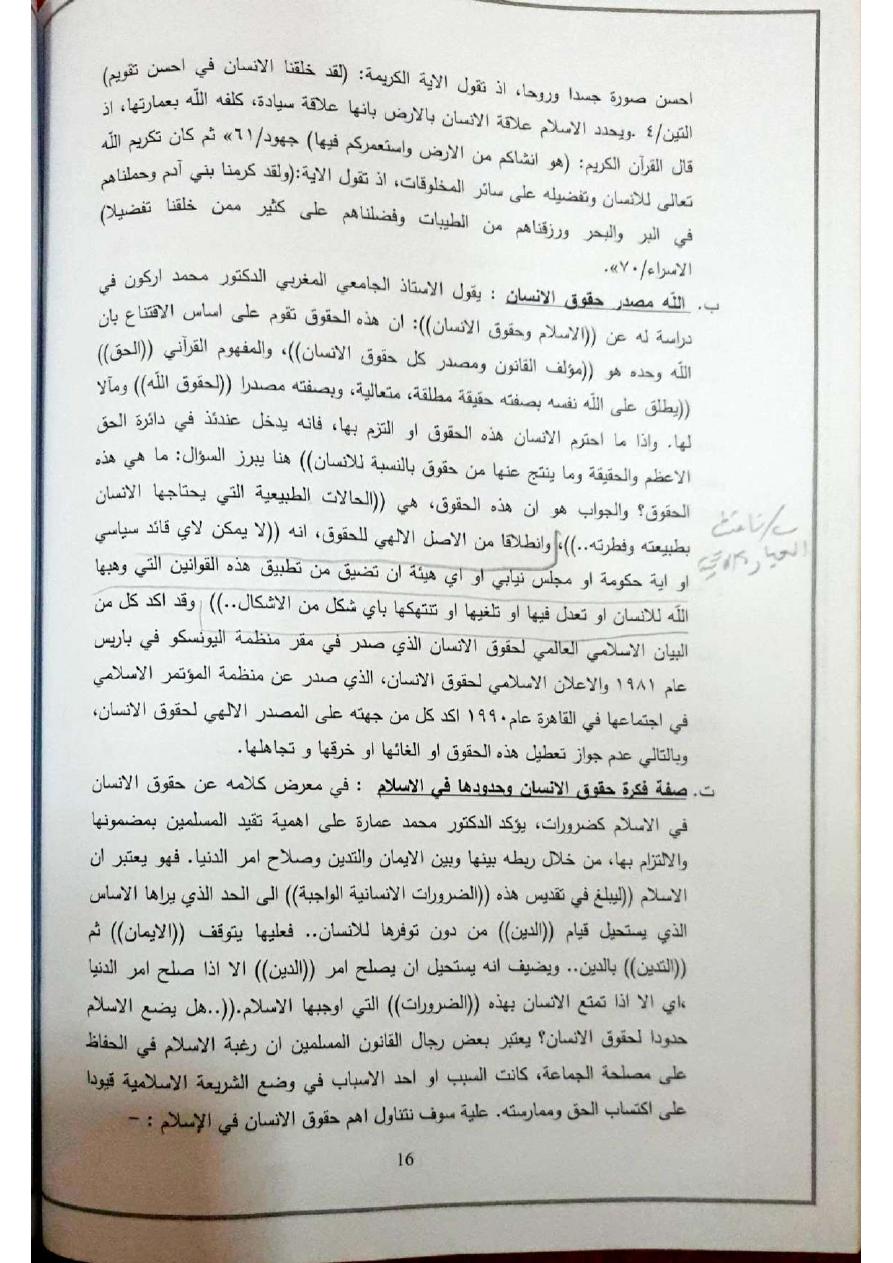 احسن صورة جسدا وروحا، اذ تقول الاية الكريمة: (لقد خلقنا الانسان في احسن تقويم)
التين/٤ .ويحدد الاسلام علاقة الانسان بالارض بانها علاقة سيادة، كلفه الله بعمارتها، اذ
قال القرآن الكريم: (هو انشاكم من الارض واستعمركم فيها) جهود/٦١» ثم كان تكريم الله
تعالى للانسان وتفضيله على سائر المخلوقات، اذ تقول الاية:(ولقد كرمنا بني آدم وحملناهم
في البر والبحر ورزقناهم من الطيبات وفضلناهم على كثير ممن خلقنا تفضيلا)
الاسراء/٧٠».
ب. الله مصدر حقوق الانسان : يقول الاستاذ الجامعي المغربي الدكتور محمد اركون في
دراسة له عن ((الاسلام وحقوق الانسان)): ان هذه الحقوق تقوم على اساس الاقتناع بان
الله وحده هو ((مؤلف القانون ومصدر كل حقوق الانسان))، والمفهوم القرآني ((الحق))
((يطلق على الله نفسه بصفته حقيقة مطلقة، متعالية، وبصفته مصدرا ((لحقوق الله)) ومآلا
لها. واذا ما احترم الانسان هذه الحقوق او التزم بها، فانه يدخل عندئذ في دائرة الحق
الاعظم والحقيقة وما ينتج عنها من حقوق بالنسبة للانسان)) هنا يبرز السؤال: ما هي هذه
الحقوق؟ والجواب هو ان هذه الحقوق، هي ((الحالات الطبيعية التي يحتاجها الانسان
بطبيعته وفطرته..))، وانطلاقا من الاصل الالهي للحقوق، انه ((لا يمكن لاي قائد سياسي
او اية حكومة او مجلس نيابي او اي هيئة ان تضيق من تطبيق هذه القوانين التي وهبها
الله للانسان او تعدل فيها او تلغيها او تنتهكها باي شكل من الاشكال..)) وقد اكد كل من
البيان الاسلامي العالمي لحقوق الانسان الذي صدر في مقر منظمة اليونسكو في باريس
عام ١٩٨١ والاعلان الاسلامي لحقوق الانسان، الذي صدر عن منظمة المؤتمر الاسلامي
في اجتماعها في القاهرة عام ١٩٩٠ اكد كل من جهته على المصدر الالهي لحقوق الانسان،
وبالتالي عدم جواز تعطيل هذه الحقوق او الغائها او خرقها و تجاهلها.
ت. صفة فكرة حقوق الانسان وحدودها في الاسلام : في معرض كلامه عن حقوق الانسان
في الاسلام كضرورات، يؤكد الدكتور محمد عمارة على اهمية تقيد المسلمين بمضمونها
والالتزام بها، من خلال ربطه بينها وبين الايمان والتدين وصلاح امر الدنيا. فهو يعتبر ان
الاسلام ((ليبلغ في تقديس هذه ((الضرورات الانسانية الواجبة)) الى الحد الذي يراها الاساس
الذي يستحيل قيام ((الدين)) من دون توفرها للانسان.. فعليها يتوقف ((الايمان)) ثم
((التدين)) بالدين.. ويضيف انه يستحيل ان يصلح امر ((الدين)) الا اذا صلح امر الدنيا
،اي الا اذا تمتع الانسان بهذه ((الضرورات)) التي اوجبها الاسلام.((..هل يضع الاسلام
حدودا لحقوق الانسان؟ يعتبر بعض رجال القانون المسلمين ان رغبة الاسلام في الحفاظ
على مصلحة الجماعة، كانت السبب او احد الاسباب في وضع الشريعة الاسلامية قيودا
على اكتساب الحق وممارسته. علية سوف نتناول اهم حقوق الانسان في الإسلام : -
16